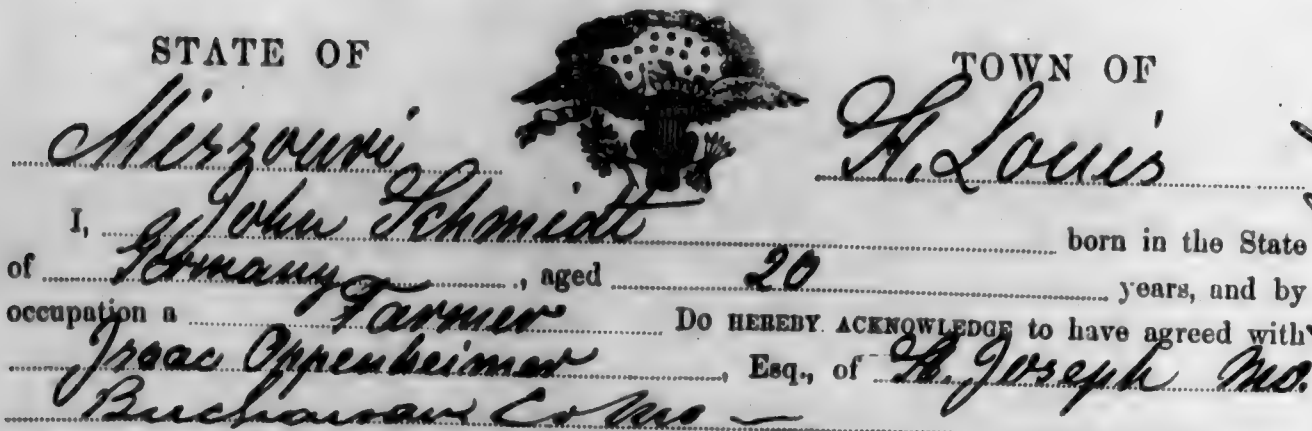 STATE OF TOWN OF
Missouri St. Louis
I, John Schmidt born in the State
of Germany, aged 20 years, and by
occupation a Farmer DO HEREBY ACKNOWLEDGE to have agreed with
Isaac Oppenheimer, Esq., of St. Joseph Mo.
Buchanan Co Mo —